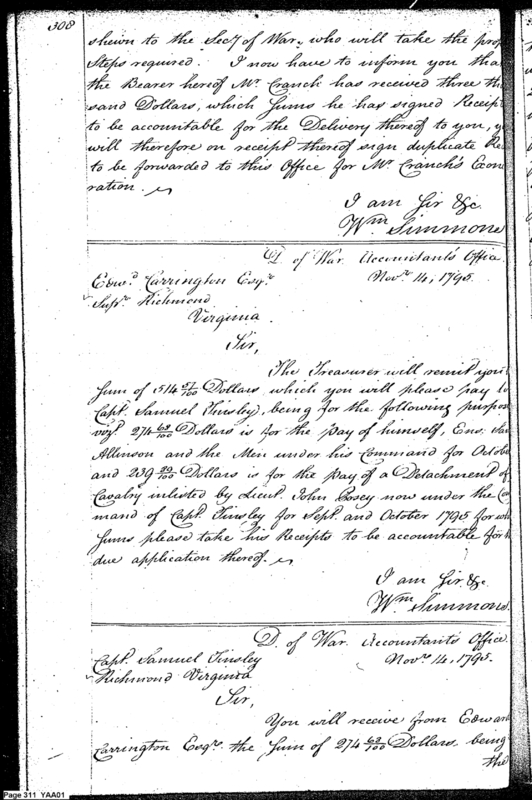 308
shewn to the Secy of War, who will take the prop
Steps required. I now have to inform you tha
the Bearer hereof Mr. Cranch has received three th
sand Dollars, which Sums he has signed Receip
to be accountable for the Delivery thereof to you, y
will therefore on receipt thereof sign duplicate Re
to be forwarded to this Office for Mr. Cranch's Exon
ration.
I am Sir &c.
Wm Simmons
D. of War. Accountant's Office
Edwd. Carrington Esqr. Novr. 14, 1795.
Supr. Richmond
Virginia.
Sir,
The Treasurer will remit you
Sum of 514 Dollars, which you will please pay to
Capt. Samuel Tinsley, being for the following purpos
vizt. 274 63/100 Dollars is for the pay of himself, Ens.
Allinson and the Men under his Command for Octob
and 239 Dollars is for the pay of a Detachment of
Cavalry inlisted by Lieut. John Posey now under the Co
mand of Capt. Tinsley for Sept. and October 1795 for wh
Sums please take his Receipts to be accountable for th
due application thereof.
I am Sir &c.
Wm Simmons
D. of War. Accountants Office
Capt. Samuel Tinsley Novr. 14, 1795.
Richmond Virginia
Sir,
You will receive from Edwar
Carrington Esqr. the Sum of 274 63/100 Dollars, being
the
Page 311 YAA01